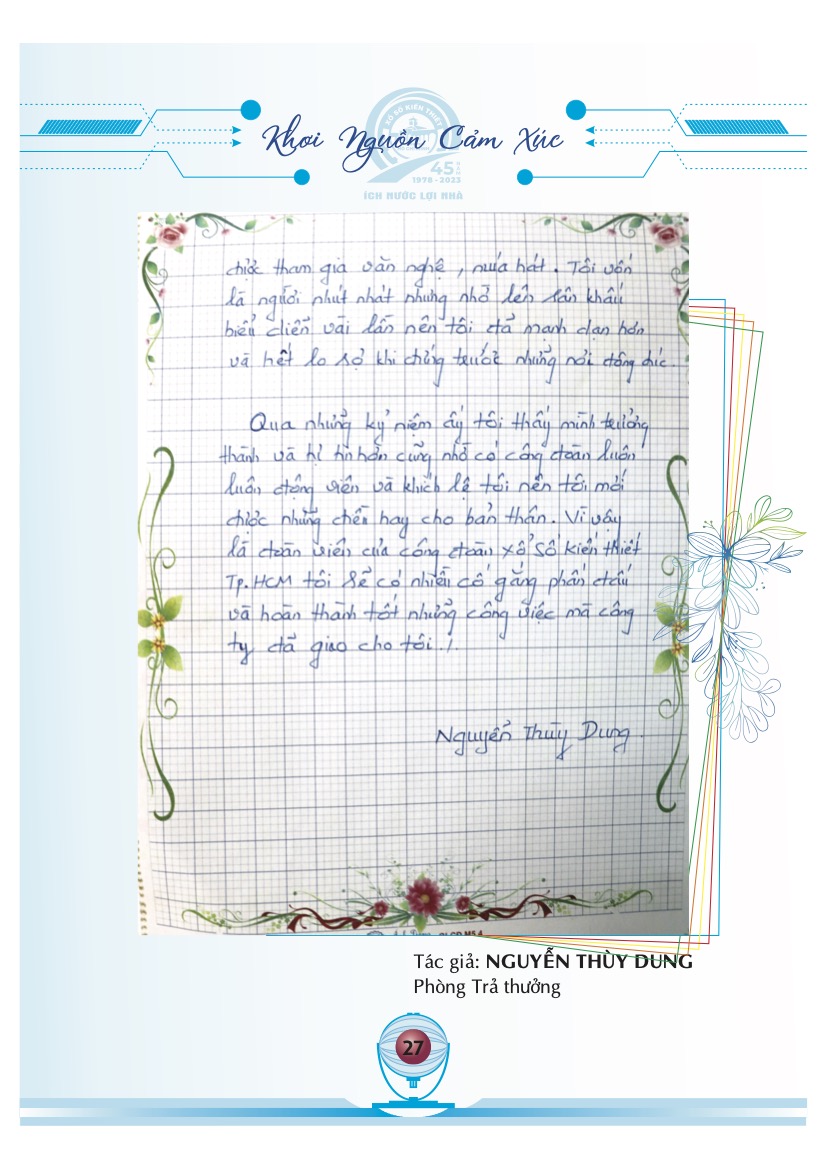 XỔ SỐ KIẾN THIẾT
Khơi Nguồn Cảm Xúc
45 NĂM
1978 - 2023
ÍCH NƯỚC LỢI NHÀ
được tham gia văn nghệ, múa hát. Tôi vốn
là người nhút nhát nhưng nhờ lên sân khấu
biểu diễn vài lần nên tôi đã mạnh dạn hơn
và hết lo sợ khi đứng trước những nơi đông đúc.
Qua những kỷ niệm ấy tôi thấy mình trưởng
thành và tự tin hơn cũng nhờ có công đoàn luôn
luôn động viên và khích lệ tôi nên tôi mới
được những đến hay cho bản thân. Vì vậy
là đoàn viên của công đoàn xổ số kiến thiết
Tp.HCM tôi sẽ có nhiều cố gắng phấn đấu
và hoàn thành tốt những công việc mà công
ty đã giao cho tôi./.
Nguyễn Thùy Dung.
Tác giả: NGUYỄN THÙY DUNG
Phòng Trả thưởng
27